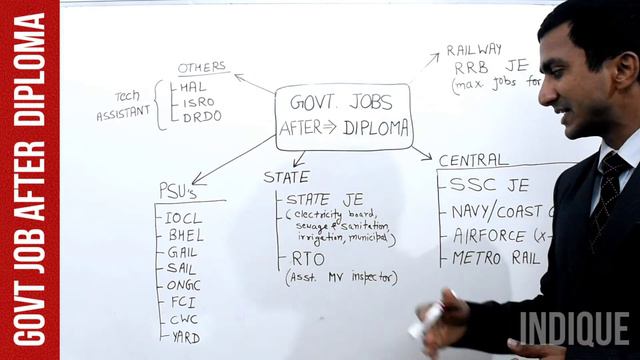 GOVT JOB AFTER DIPLOMA
GOVT. JOBS
AFTER⇒ DIPLOMA
OTHERS
HAL
ISRO
DRDO
Tech
ASSISTANT
RAILWAY
RRB JE
(max jobs for
PSU's
IOCL
BHEL
GAIL
SAIL
ONGC
FCI
CWC
YARD
STATE
STATE JE
(electricity board,
sewage & sanitation,
irrigation, municipal)
RTO
(Asst. MV inspector)
CENTRAL
SSC JE
NAVY/COAST
AIRFORCE (X-
METRO RAIL
INDIQUE